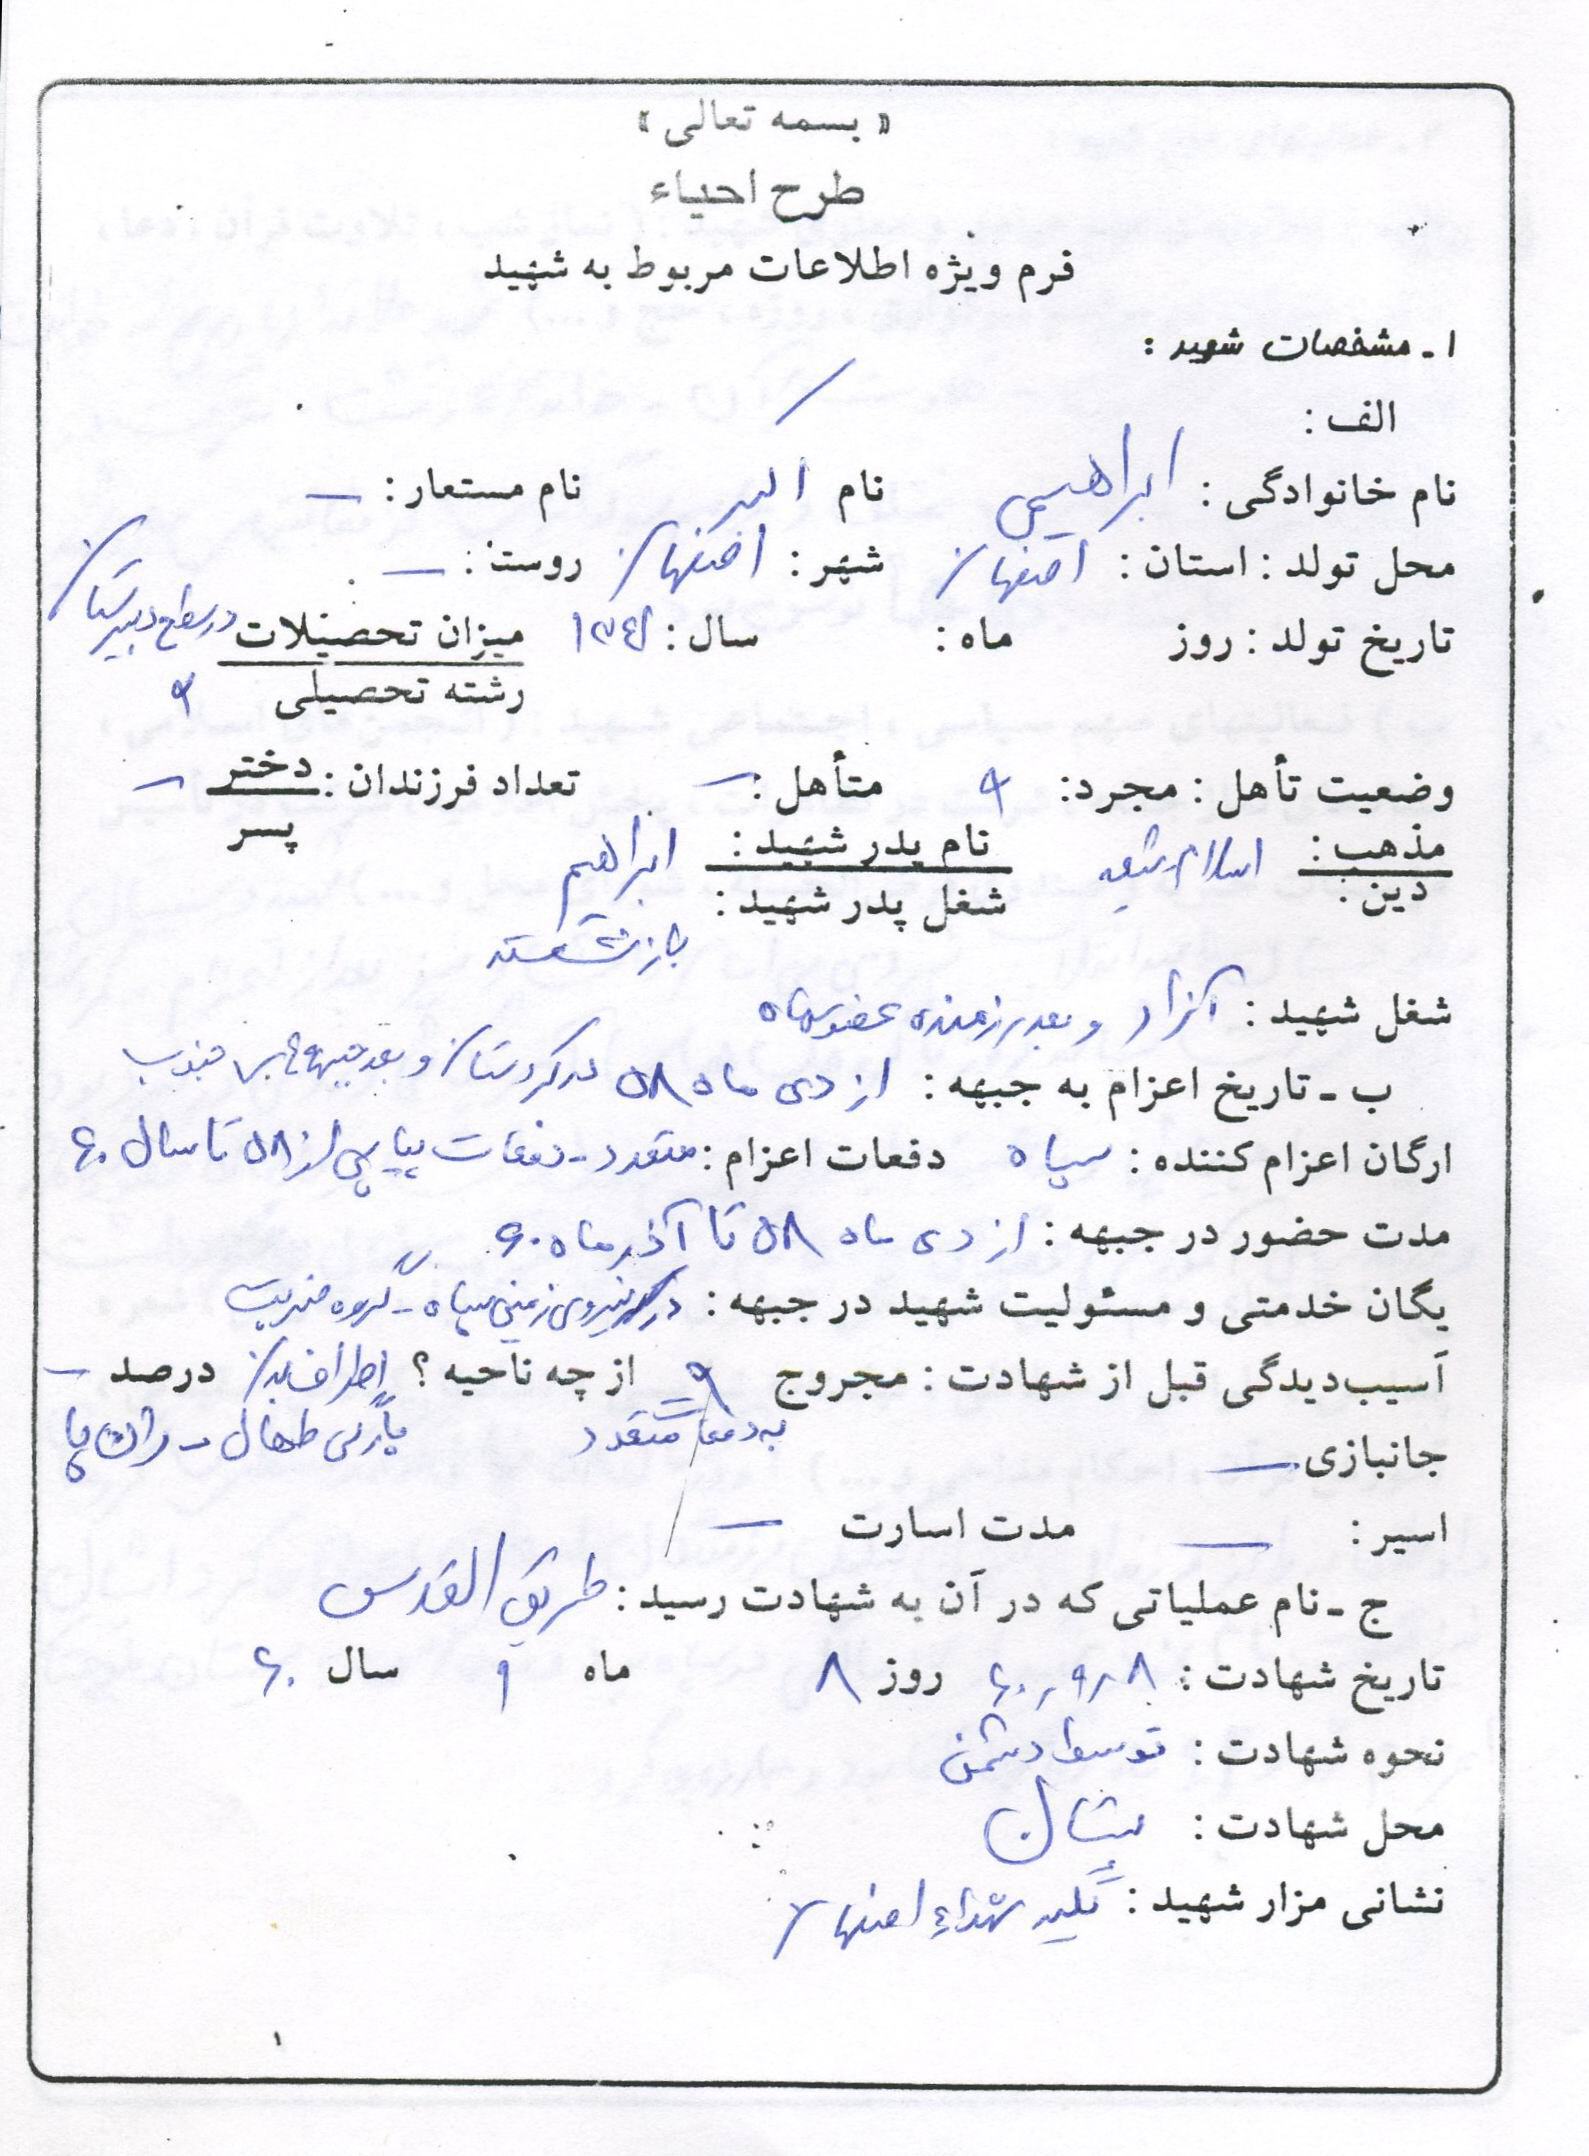 « بسمه تعالی »
طرح احیاء
فرم ویژه اطلاعات مربوط به شهید
۱ ـ مشخصات شهید :
الف :
نام خانوادگی : ابراهیمی نام اکبر نام مستعار : ـ
محل تولد : استان : اصفهان شهر : اصفهان روستا : ـ
تاریخ تولد : روز ماه : سال : میزان تحصیلات در سطح دبیرستان
رشته تحصیلی
وضعیت تأهل : مجرد : متأهل : ـ تعداد فرزندان : دختر ـ
پسر
مذهب : اسلام شیعه نام پدر شهید : ابراهیم
دین : شغل پدر شهید : بازنشسته
شغل شهید : آزاد و بعد رزمنده عضو سپاه
ب ـ تاریخ اعزام به جبهه : از دی ماه ۵۸ در کردستان و بعد جبهه های جنوب
ارگان اعزام کننده : سپاه دفعات اعزام : متعدد ـ دفعات پیاپی از ۵۸ تا سال ۶۰
مدت حضور در جبهه : از دی ماه ۵۸ تا آذر ماه ۶۰
یگان خدمتی و مسئولیت شهید در جبهه : در نیروی زمینی سپاه ـ گروه ضربت
آسیب‌دیدگی قبل از شهادت : مجروح از چه ناحیه ؟ اطراف بدن درصد ـ
به دفعات متعدد پارگی طحال ـ ران پا
جانبازی ـ
اسیر : ـ مدت اسارت ـ
ج ـ نام عملیاتی که در آن به شهادت رسید : طریق القدس
تاریخ شهادت : ۶۰٫۹٫۸ روز ۸ ماه ۹ سال ۶۰
نحوه شهادت : توسط دشمن
محل شهادت :
نشانی مزار شهید : شهداء اصفهان
۱